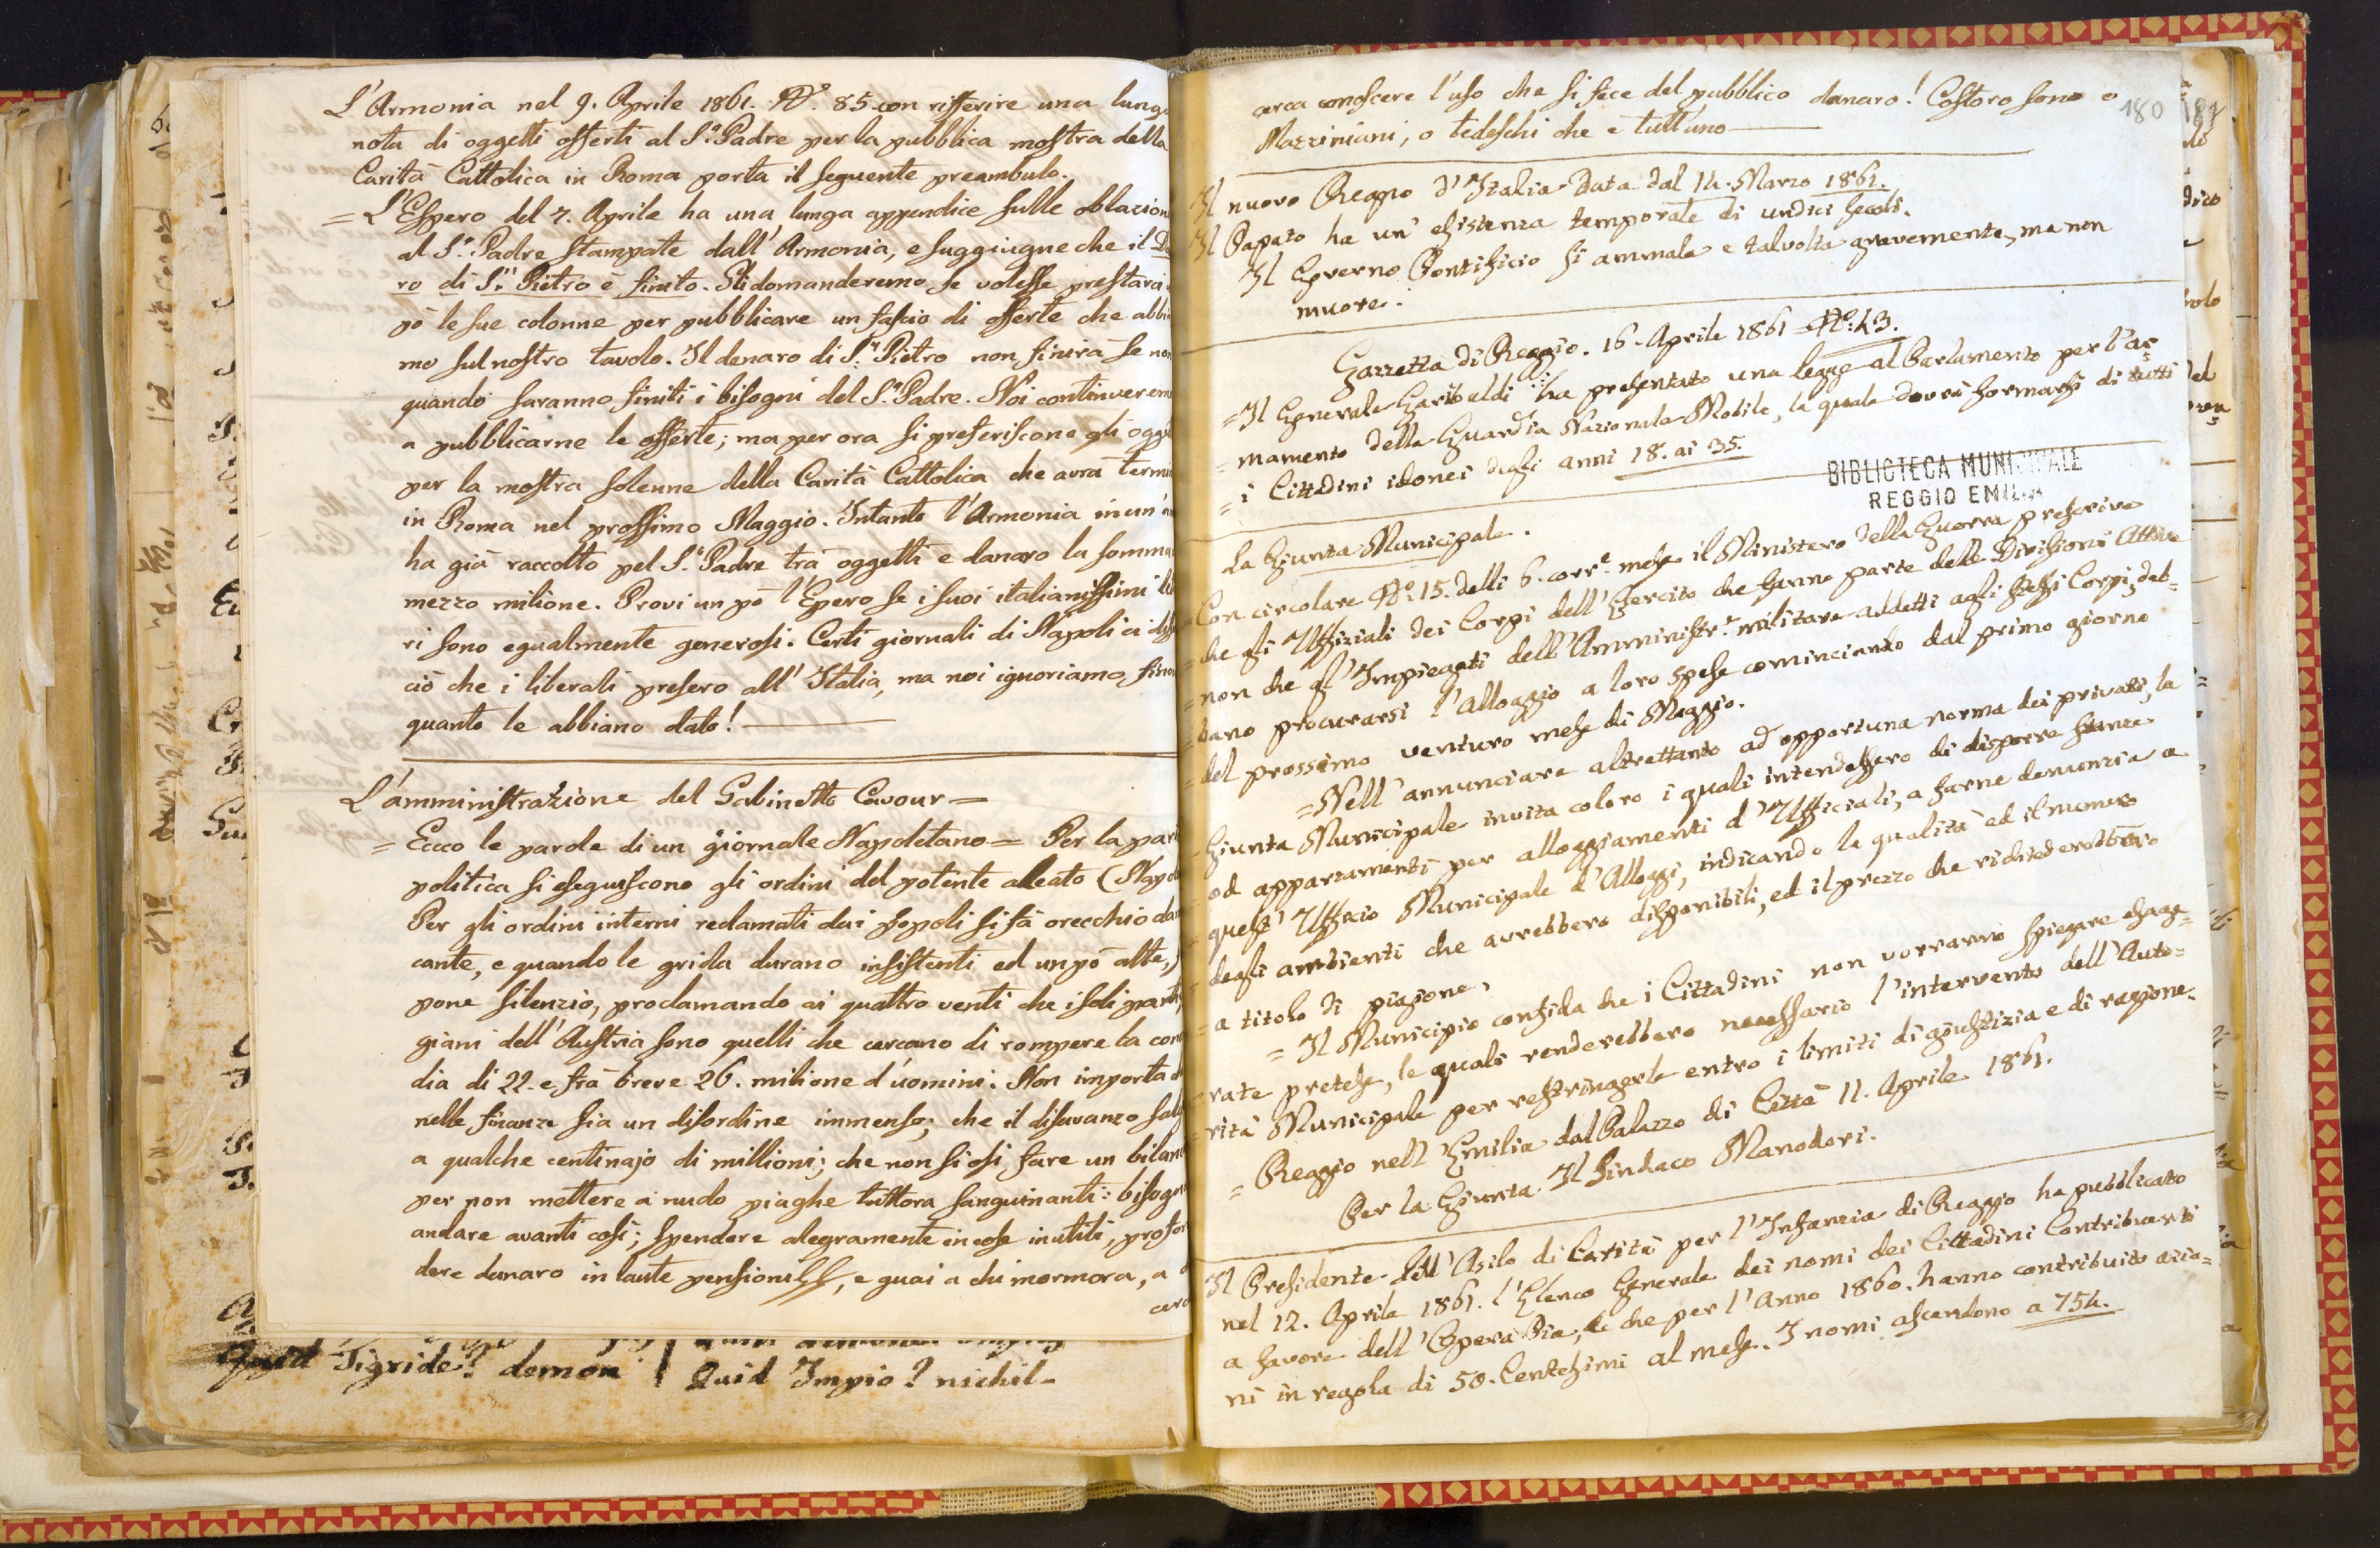 L'Armonia nel 9. Aprile 1861. N.º 85. con rifferire una lunga
nota di oggetti offerti al S.º Padre per la pubblica mostra della
Carità Cattolica in Roma porta il seguente preambulo.
= L'Espero del 7. Aprile ha una lunga appendice sulle oblazion
al S.º Padre stampate dall'Armonia, e suggiugne che il Da
ro di S.n Pietro è finito. Gli domanderemo se volesse prestarci
pò le sue colonne per pubblicare un fascio di offerte che abbia
mo sul nostro tavolo. Il denaro di S.n Pietro non finirà se non
quando saranno finiti i bisogni del S.º Padre. Noi continuerem
a pubblicarne le offerte; ma per ora si preferiscono gli ogge
per la mostra solenne della Carità Cattolica che avrà termi
in Roma nel prossimo Maggio. Intanto l'Armonia in un'
ha già raccolto pel S.º Padre trà oggetti e danaro la somma
mezzo milione. Provi un pò l'Epero se i suoi italianissimi
ri sono egualmente generosi. Certi giornali di Napoli ci
ciò che i liberali presero all'Italia, ma noi ignoriamo fino
quanto le abbiano dato!
L'amministrazione del Gabinetto Cavour =
= Ecco le parole di un giornale Napoletano = Per la par
politica si eseguiscono gli ordini del potente aleato (Napol
Per gli ordini interni reclamati dai popoli si fà orecchio da
cante, e quando le grida durano insistenti ed un pò alte,
pone silenzio, proclamando ai quattro venti che i soli parti
giani dell'Austria sono quelli che cercano di rompere la con
dia di 22. e frà breve 26. milione d'uomini. Non importa
nelle finanze sia un disordine immenso; che il disavanzo sal
a qualche centinajo di millioni; che non si osi fare un bilan
per non mettere a nudo piaghe tuttora sanguinanti: bisogna
andare avanti così; spendere alegramente in cose inutili, profon
dere danaro in laute pensioni, e guai a chi mormora, a
cerca
Quid Tigride? demon
Quid Impio? nichil-
180
cerca conoscere l'uso che si fece del pubblico danaro! Costoro sono o
Mazziniani, o tedeschi che è tutt'uno
Il nuovo Regno d'Italia Data dal 14. Marzo 1861.
Il Papato ha un'esistenza temporale di undici secoli.
Il Governo Pontificio si ammala e talvolta gravemente, ma non
muore.
Gazzetta di Reggio. 16. Aprile 1861 N.º 43.
= Il Generale Garibaldi ha presentato una legge al Parlamento per l'ar=
= mamento della Guardia Nazionale Mobile, la quale dovrà formarsi di tutti
= i Cittadini idonei dagli anni 18. ai 35.
BIBLIOTECA MUNICIPALE
REGGIO EMILIA
La Giunta Municipale.
= Con circolare N.º 15. delli 6. corr.e mese il Ministero della Guerra prescrive
= che gli Uffiziali dei Corpi dell'Esercito che fanno parte delle Divisioni Attive
= non che gl'Impiegati dell'Amministr.e militare addetti agli stessi Corpi, deb=
= bano procurarsi l'alloggio a loro spese cominciando dal primo giorno
= del prossimo venturo mese di Maggio.
= Nell'annunciare altrettanto ad opportuna norma dei privati, la
Giunta Municipale invita coloro i quali intendessero di disporre stanze
od appartamenti per alloggiamenti d'Ufficiali, a farne denunzia a
quest'Ufficio Municipale d'Alloggi, indicando la qualità ed il numero
degli ambienti che avrebbero disponibili, ed il prezzo che richiederebbero
= a titolo di pigione.
= Il Municipio confida che i Cittadini non vorranno spiegare esage=
rate pretese, le quali renderebbero necessario l'intervento dell'Auto=
= rità Municipale per restringerle entro i limiti di giustizia e di ragione.
= Reggio nell'Emilia dal Palazzo di Città 11. Aprile 1861.
Per la Giunta Il Sindaco Manodori.
Il Presidente dell'Asilo di Carità per l'Infanzia di Reggio ha pubblicato
nel 12. Aprile 1861. l'Elenco Generale dei nomi dei Cittadini Contribuenti
a favore dell'Opera Pia, che per l'Anno 1860. hanno contribuito azio=
ni in regola di 50. Centesimi al mese. I nomi ascendono a 754.